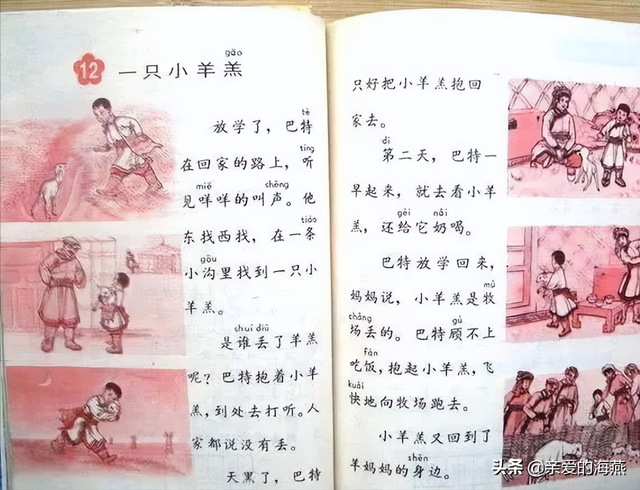 gāo
12 一只小羊羔
tè
放学了，巴特
tīng
在回家的路上，听
miē shēng
见咩咩的叫声。他
tiáo
东找西找，在一条
gōu
小沟里找到一只小
羊羔。
shuí diū
是谁丢了羊羔
呢？巴特抱着小羊
羔，到处去打听。人
家都说没有丢。
天黑了，巴特
只好把小羊羔抱回
家去。
dì
第二天，巴特一
早起来，就去看小羊
gěi nǎi
羔，还给它奶喝。
巴特放学回来，
mù
妈妈说，小羊羔是牧
chǎng gù
场丢的。巴特顾不上
fàn
吃饭，抱起小羊羔，飞
kuài
快地向牧场跑去。
小羊羔又回到了
shēn
羊妈妈的身边。
头条 @亲爱的海燕